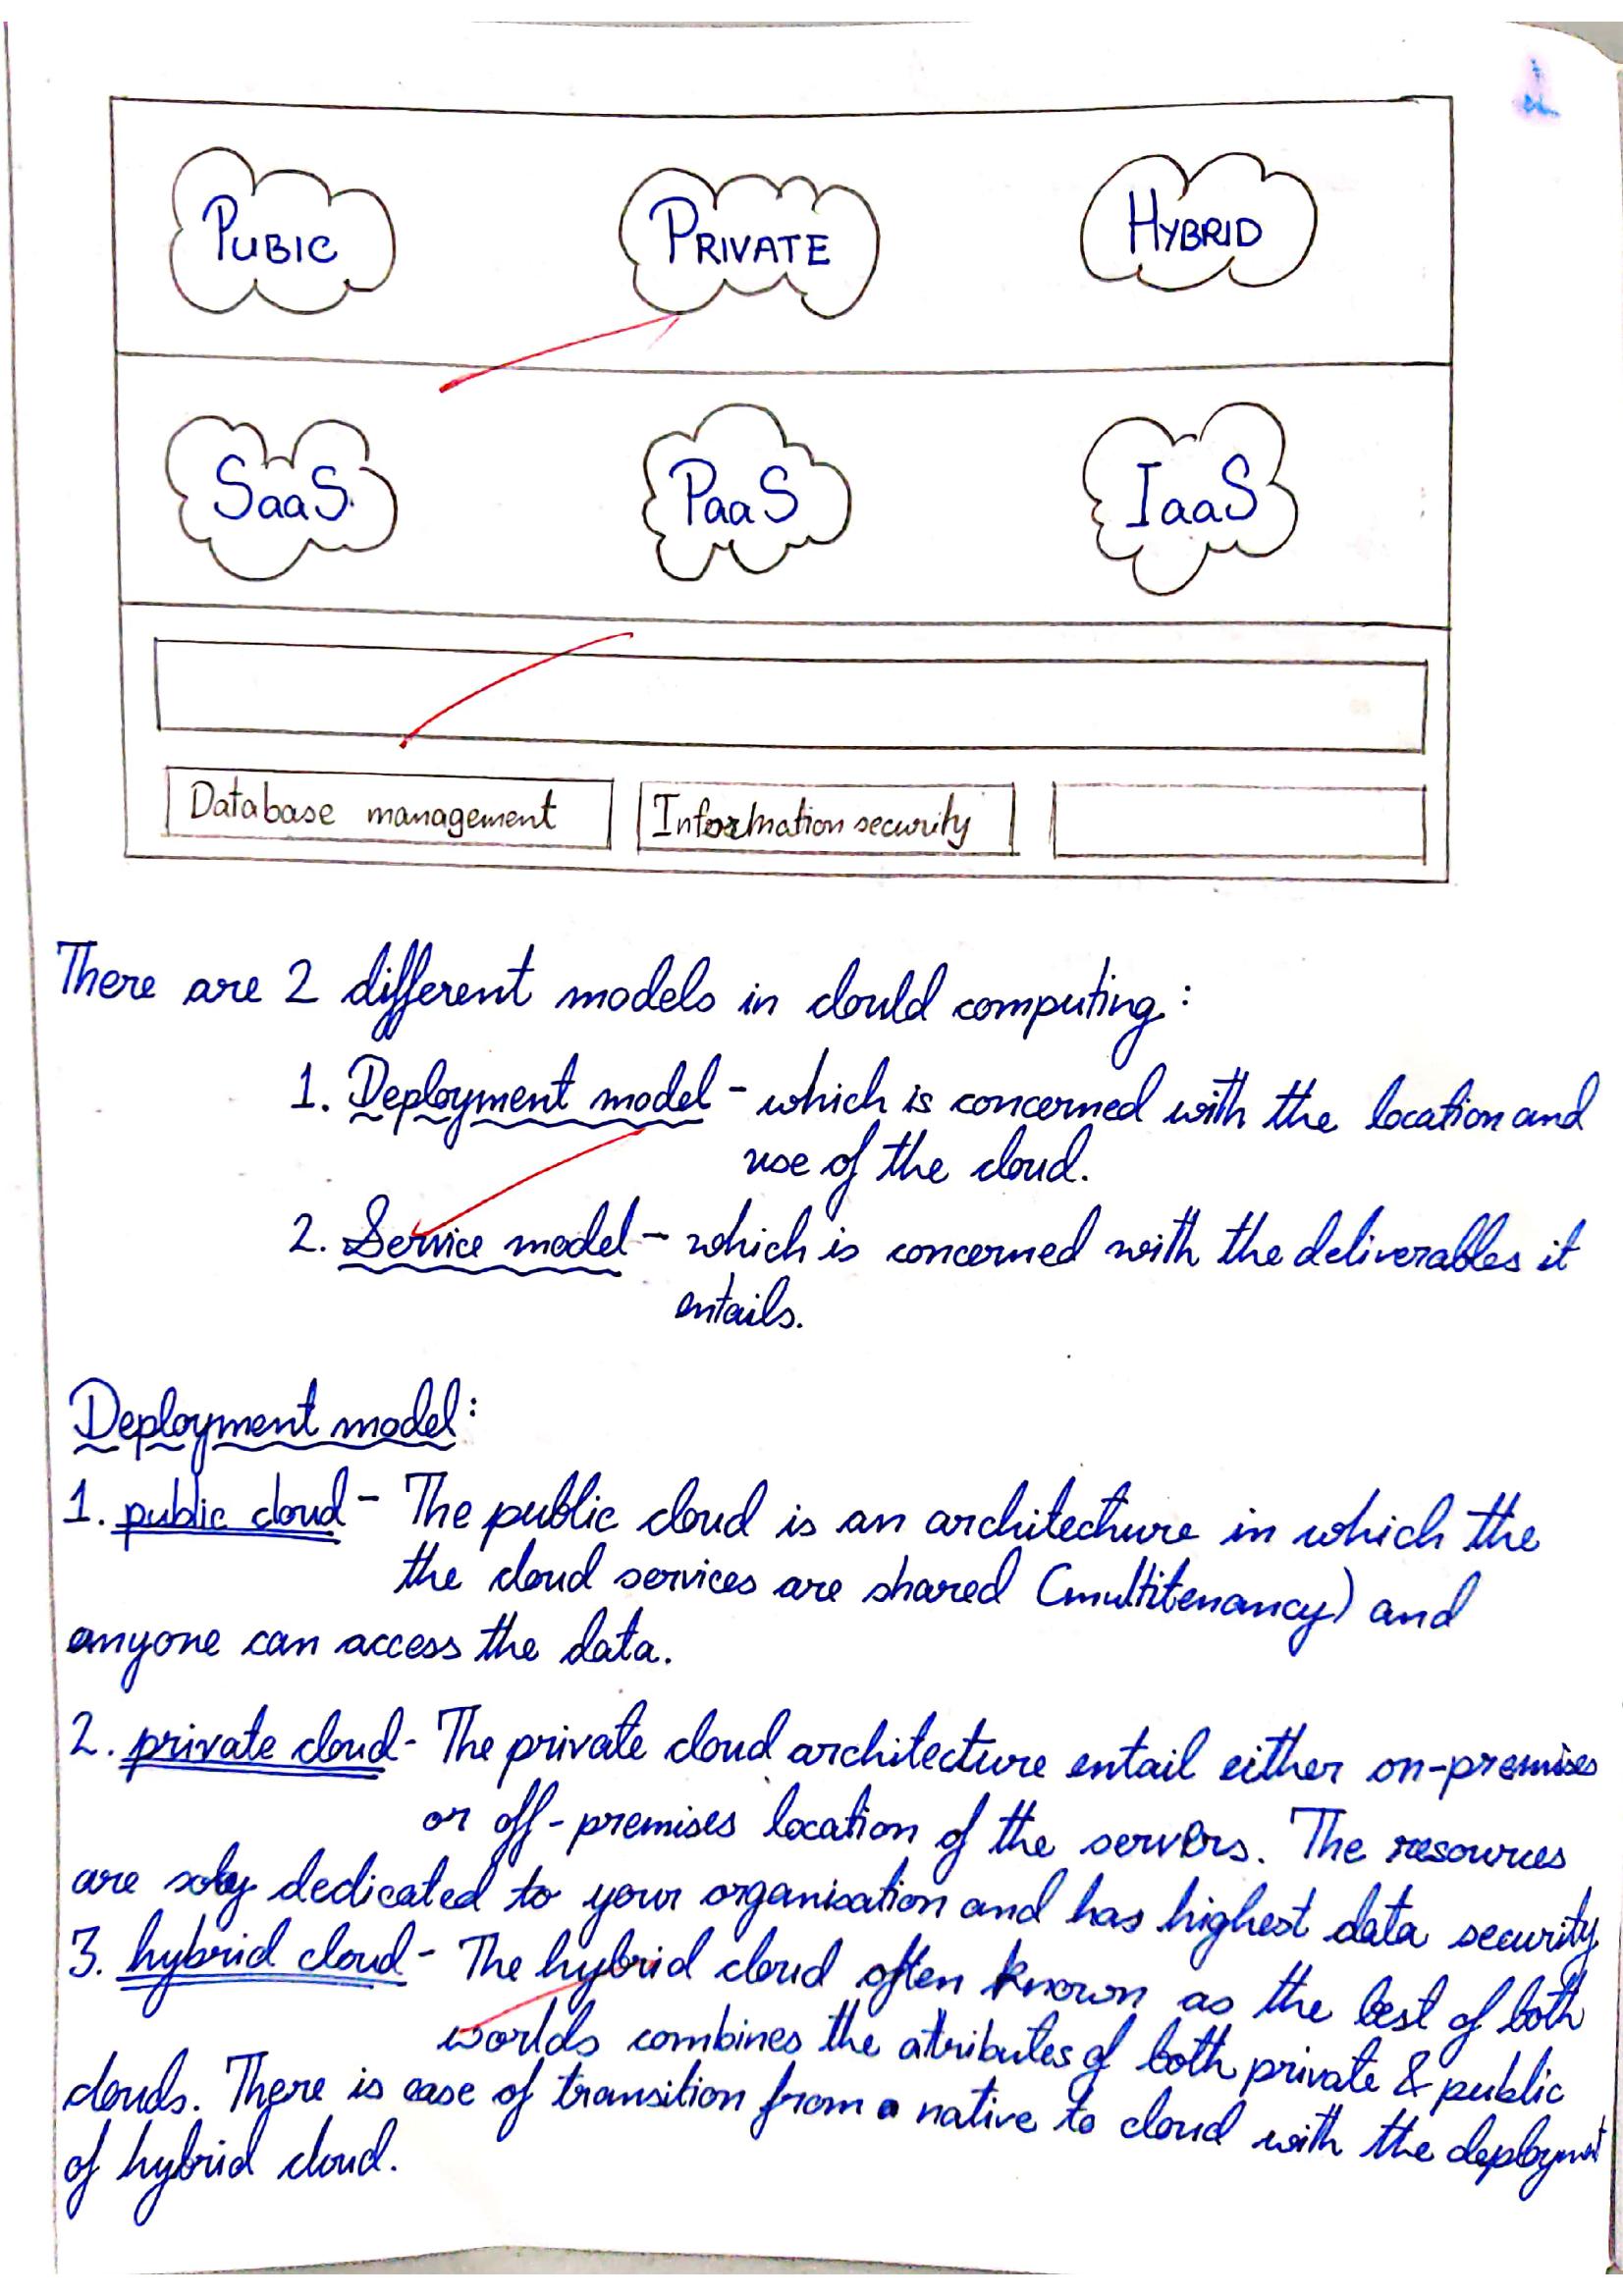 PUBIC
PRIVATE
HYBRID
SaaS
PaaS
IaaS
Database management
Information security
There are 2 different models in clould computing:
1. Deployment model - which is concerned with the location and
use of the cloud.
2. Service model - which is concerned with the deliverables it
entails.
Deployment model:
1. public cloud - The public cloud is an architechure in which the
the cloud services are shared (multitenancy) and
anyone can access the data.
2. private cloud - The private cloud architecture entail either on-premises
or off-premises location of the servers. The resources
are soley dedicated to your organisation and has highest data security
3. hybrid cloud - The hybrid cloud often known as the best of both
worlds combines the attributes of both private & public
clouds. There is ease of transition from a native to cloud with the deploymnt
of hybrid cloud.